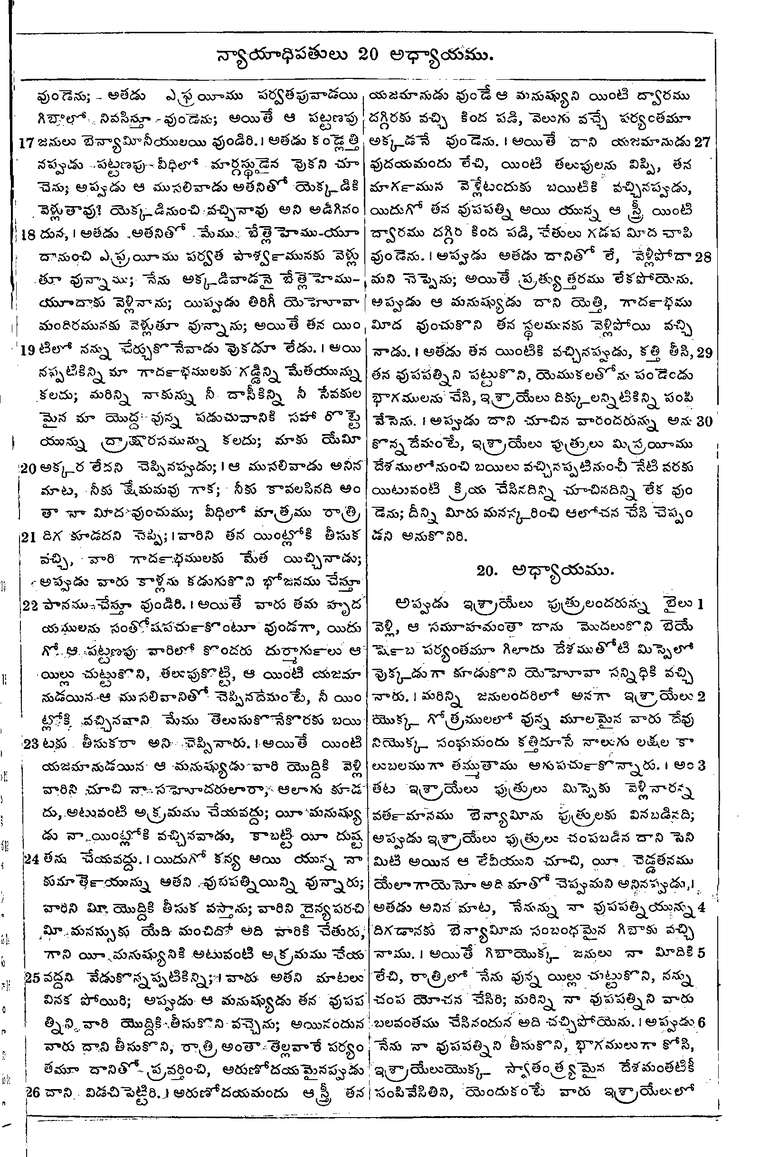 న్యాయాధిపతులు 20 అధ్యాయము.
వుండెను; అతడు ఎఫ్రయీము పర్వతపువాడయి
గిబాలో నివసిస్తూ వుండెను; అయితే ఆ పట్టణపు
17 జనులు బెన్యామినీయులయి వుండిరి. । అతడు కండ్లెత్తి
నప్పుడు పట్టణపు వీధిలో మార్గస్థుడైన వొకని చూ
చెను; అప్పుడు ఆ ముసలివాడు అతనితో యెక్కడికి
వెళ్లుతావు? యెక్కడినుంచి వచ్చినావు అని అడిగినం
18 దున, । అతడు అతనితో మేము బేత్లెహెము-యూ
దానుంచి ఎఫ్రయీము పర్వత పార్శ్వమునకు వెళ్లు
తూ వున్నాము; నేను అక్కడివాడనై బేత్లెహెము-
యూదాకు వెళ్లినాను; యిప్పుడు తిరిగీ యెహోవా
మందిరమునకు వెళ్లుతూ వున్నాను; అయితే తన యిం
19 టిలో నన్ను చేర్చుకొనేవాడు వొకడూ లేడు. । అయి
నప్పటికిన్ని మా గాదFభములకు గడ్డిన్ని మేతయున్ను
కలదు; మరిన్ని నాకున్ను నీ దాసీకిన్ని నీ సేవకుల
మైన మా యొద్ద వున్న పడుచువానికి సహా రొట్టె
యున్ను ద్రాక్షారసమున్ను కలదు; మాకు యేమీ
20 అక్కర లేదని చెప్పినప్పుడు; । ఆ ముసలివాడు అనిన
మాట, నీకు క్షేమమవు గాక; నీకు కావలసినది అం
తా నా మీద వుంచుము; వీధిలో మాత్రము రాత్రి
21 దిగ కూడదని చెప్పి; । వారిని తన యింట్లోకి తీసుక
వచ్చి, వారి గాదFభములకు మేత యిచ్చినాడు;
అప్పుడు వారు కాళ్లను కడుగుకొని భోజనము చేస్తూ
22 పానము చేస్తూ వుండిరి. । అయితే వారు తమ హృద
యములను సంతోషపచుFకొంటూ వుండగా, యిదు
గో ఆ పట్టణపు వారిలో కొందరు దుర్మాగుFలు ఆ
యిల్లు చుట్టుకొని, తలుపుకొట్టి, ఆ యింటి యజమా
నుడయిన ఆ ముసలివానితో చెప్పినదేమంటే, నీ యిం
ట్లోకి వచ్చినవాని మేము తెలుసుకొనేకొరకు బయి
23 టకు తీసుకరా అని చెప్పినారు. । అయితే యింటి
యజమానుడయిన ఆ మనుష్యుడు వారి యొద్దికి వెళ్లి
వారిని చూచి నా సహోదరులారా, ఆలాగు కూడ
దు, అటువంటి అక్రమము చేయవద్దు; యీ మనుష్యు
డు నా యింట్లోకి వచ్చినవాడు, కాబట్టి యీ దుష్ట
24 తను చేయవద్దు. । యిదుగో కన్య అయి యున్న నా
కుమార్తెయున్ను ఆతని వుపపత్నియిన్ని వున్నారు;
వారిని మీ యొద్దికి తీసుక వస్తాను; వారిని దైన్యపరచి
మీ మనస్సుకు యేది మంచిదో అది వారికి చేతురు,
గాని యీ మనుష్యునికి అటువంటి అక్రమము చేయ
25 వద్దని వేడుకొన్నప్పటికిన్ని; । వారు అతని మాటలు
వినక పోయిరి; అప్పుడు ఆ మనుష్యుడు తన వుపప
త్నిని వారి యొద్దికి తీసుకొని వచ్చెను; అయినందున
వారు దాని తీసుకొని, రాత్రి అంతా తెల్లవారే పర్యం
తమూ దానితో ప్రవర్తించి, అరుణోదయమైనప్పుడు
26 దాని విడచిపెట్టిరి. । అరుణోదయమందు ఆ స్త్రీ తన
యజమానుడు వుండే ఆ మనుష్యుని యింటి ద్వారము
దగ్గిరకు వచ్చి కింద పడి, వెలుగు వచ్చే పర్యంతమూ
అక్కడనే వుండెను. । అయితే దాని యజమానుడు 27
వుదయమందు లేచి, యింటి తలుపులను విప్పి, తన
మాగFమున వెళ్లేటందుకు బయిటికి వచ్చినప్పుడు,
యిదుగో తన వుపపత్ని అయి యున్న ఆ స్త్రీ యింటి
ద్వారము దగ్గిర కింద పడి, చేతులు గడప మీద చాపి
వుండెను. । అప్పుడు అతడు దానితో లే, వెళ్లిపోదా 28
మని చెప్పెను; అయితే ప్రత్యుత్తరము లేకపోయెను.
అప్పుడు ఆ మనుష్యుడు దాని యెత్తి, గాదFభము
మీద వుంచుకొని తన స్థలమునకు వెళ్లిపోయి వచ్చి
నాడు. । అతడు తన యింటికి వచ్చినప్పుడు, కత్తి తీసి, 29
తన వుపపత్నిని పట్టుకొని, యెముకలతోను పండ్రెండు
భాగములను చేసి, ఇశ్రాయేలు దిక్కులన్నిటికిన్ని పంపి
వేసెను. । అప్పుడు దాని చూచిన వారందరున్ను అను 30
కొన్నదేమంటే, ఇశ్రాయేలు పుత్రులు మిస్రయీము
దేశములోనుంచి బయిలు వచ్చినప్పటినుంచీ నేటి వరకు
యిటువంటి క్రియ చేసినదిన్ని చూచినదిన్ని లేక వుం
డెను; దీన్ని మీరు మనస్కరించి ఆలోచన చేసి చెప్పం
డని అనుకొనిరి.
20. అధ్యాయము.
అప్పుడు ఇశ్రాయేలు పుత్రులందరున్ను బైలు 1
వెళ్లి, ఆ సమూహమంతా దాను మొదలుకొని బెయే
షెFబ పర్యంతమూ గిలాదు దేశముతోటి మిస్పెలో
వొక్కడుగా కూడుకొని యెహోవా సన్నిధికి వచ్చి
నారు. । మరిన్ని జనులందరిలో అనగా ఇశ్రాయేలు 2
యొక్క గోత్రములలో వున్న మూలమైన వారు దేవు
నియొక్క సంఘమందు కత్తిదూసే నాలుగు లక్షల కా
లుబలముగా తమ్మునుతాము అగుపచుFకొన్నారు. । అం 3
తట ఇశ్రాయేలు పుత్రులు మిస్పెకు వెళ్లినారన్న
వతFమానము బెన్యామీను పుత్రులకు వినబడినది;
అప్పుడు ఇశ్రాయేలు పుత్రులు చంపబడిన దాని పెని
మిటి అయిన ఆ లేవీయుని చూచి, యీ చెడ్డతనము
యేలాగాయెనో అది మాతో చెప్పుమని అనినప్పుడు, ।
అతడు అనిన మాట, నేనున్ను నా వుపపత్నియున్ను 4
దిగడానకు బెన్యామీను సంబంధమైన గిబాకు వచ్చి
నాము. । అయితే గిబాయొక్క జనులు నా మీదికి 5
లేచి, రాత్రిలో నేను వున్న యిల్లు చుట్టుకొని, నన్ను
చంప యోచన చేసిరి; మరిన్ని నా వుపపత్నిని వారు
బలవంతము చేసినందున అది చచ్చిపోయెను. । అప్పుడు 6
నేను నా వుపపత్నిని తీసుకొని, భాగములుగా కోసి,
ఇశ్రాయేలుయొక్క స్వాతంత్ర్యమైన దేశమంతటికీ
పంపివేసితిని, యెందుకంటే వారు ఇశ్రాయేలులో